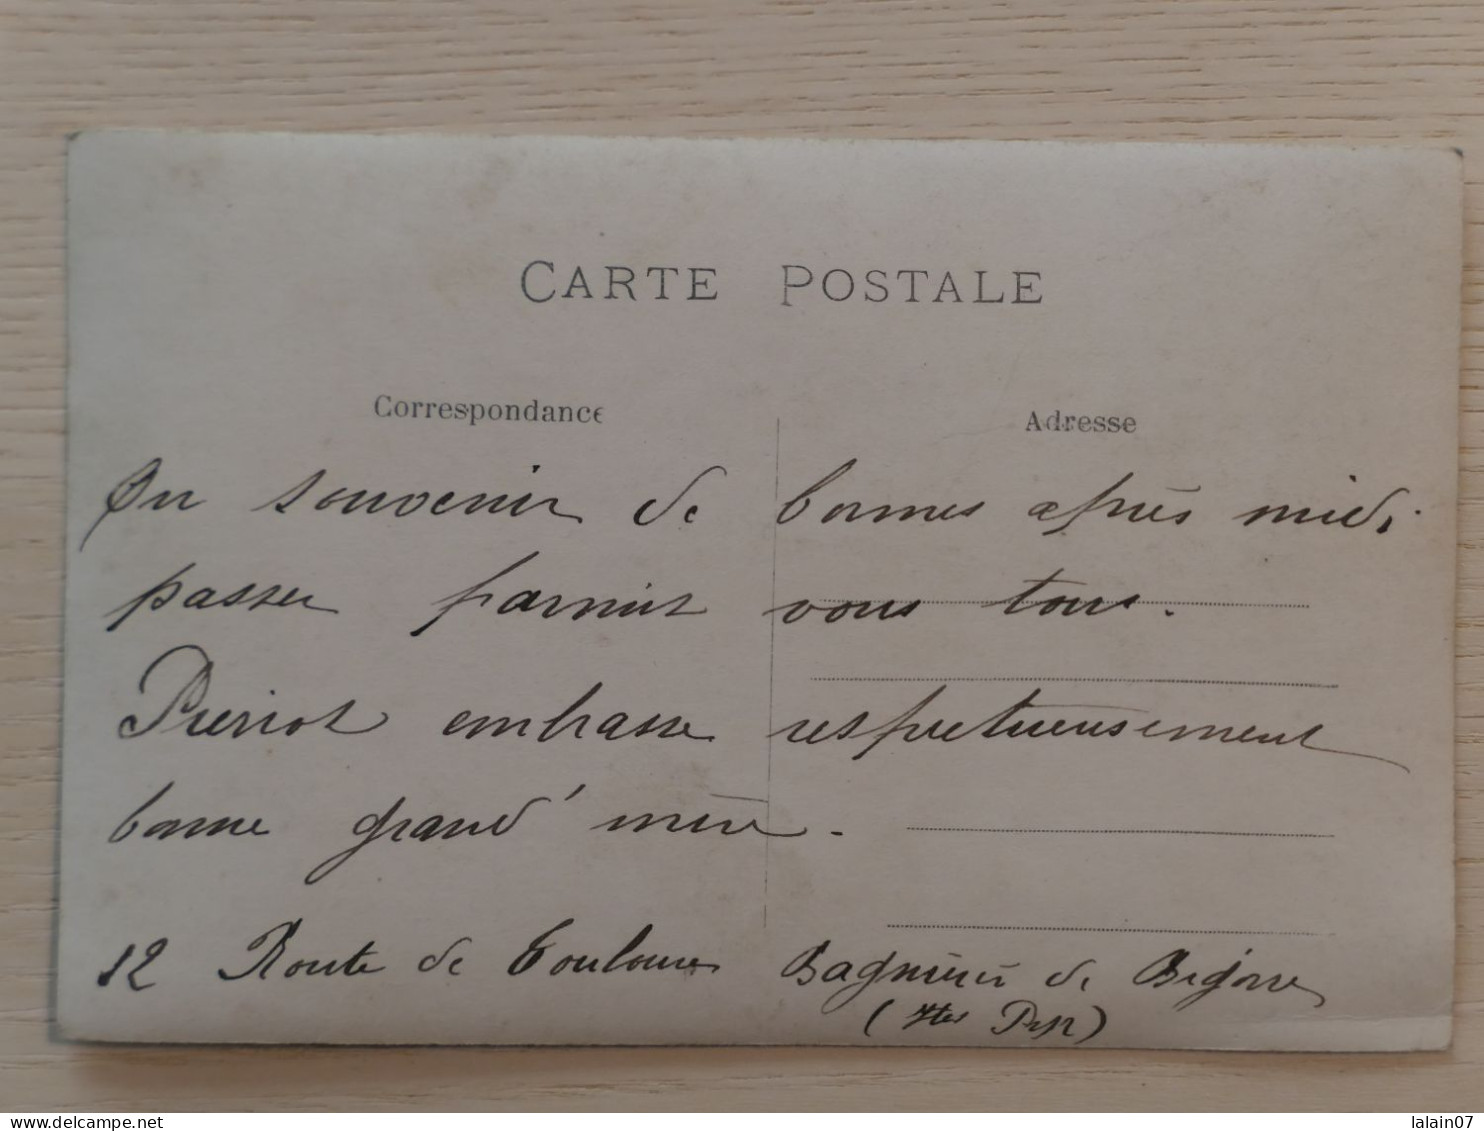 CARTE POSTALE
Correspondance
Adresse
En souvenir de bonnes après midi
passer parmis vous tous.
Pierrot embrasse respectueusement
bonne grand'mère.
12 Route de Toulouse Bagnères de Bigorre
(Htes Pyr)
delcampe.net
lalain07